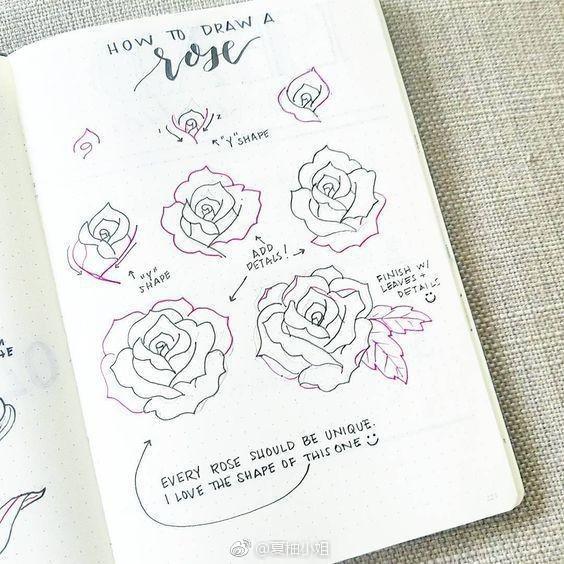 HOW TO DRAW A
rose
1
2
"Y" SHAPE
"Y"
SHAPE
ADD
DETALS!
FINISH W/
LEAVES +
DETAILS
EVERY ROSE SHOULD BE UNIQUE.
I LOVE THE SHAPE OF THIS ONE
@夏柚小姐